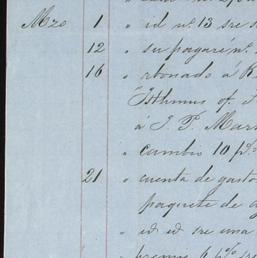 Mzo 1 " id nº 13 sre s
12 " su pagaré nº
16 " Abonado á R
Isthmus of
á J. P. Mar
" cambio 10 p%
21 " cuenta de gasto
paquete de
" id id sre una
6 p%